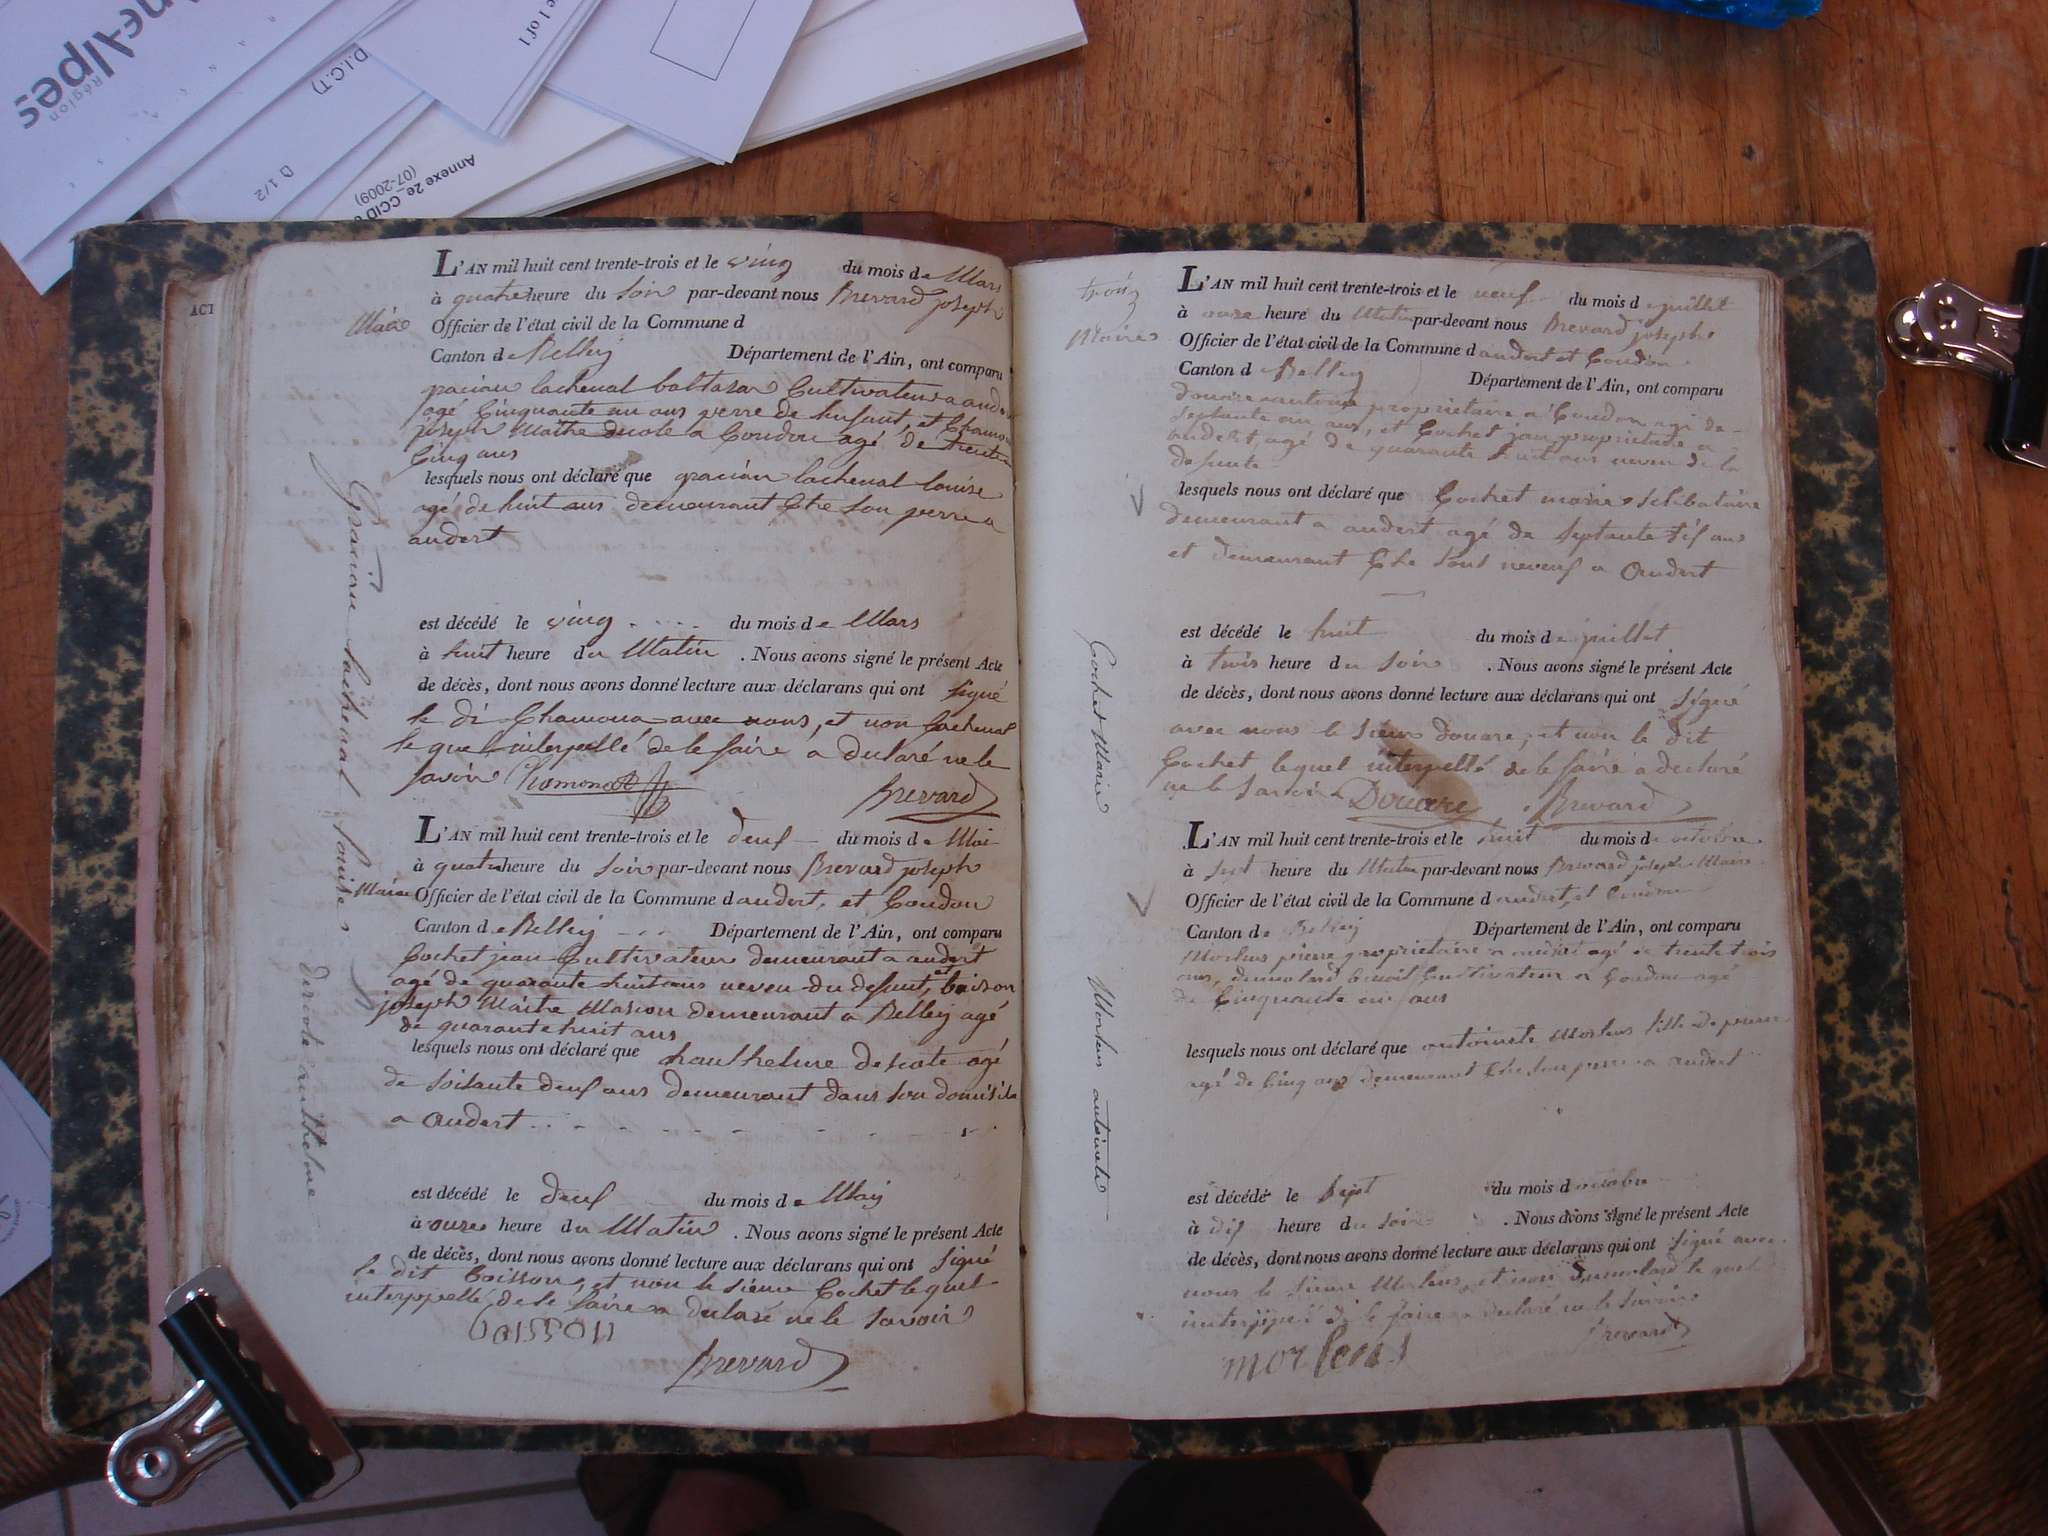 ne-Alpes
Région
D.I.C.T)
e 1 of 1
D 1/2
Annexe 2e_ CCID
(07-2009)
ACT
L'AN mil huit cent trente-trois et le ving du mois de Mars
à quatre heure du soir par-devant nous Brevard joseph
Maire Officier de l'état civil de la Commune d
Canton de Belley Département de l'Ain, ont comparu
gracian lachenal baltazar Cultivateur a andert
agé Cinquante un ans perre de et Chamona
joseph Maitre a Coudon agé de trente
Cinq ans
lesquels nous ont déclaré que gracian lachenal louise
agé de huit ans demeurant Che son perre a
andert
est décédé le ving du mois de Mars
à huit heure du Matin . Nous avons signé le présent Acte
de décès, dont nous avons donné lecture aux déclarans qui ont signé
le di Chamona avec nous, et non lachenal
le quel interpellé de le faire a declaré ne le
savoir Chamonat Brevard
Gracian lachenal louise
L'AN mil huit cent trente-trois et le deuf du mois de Mai
à quatre heure du soir par-devant nous Brevard joseph
Maire Officier de l'état civil de la Commune d andert, et Coudon
Canton de Belley Département de l'Ain, ont comparu
Cochet jean Cultivateur demeurant a andert
agé de quarante huit ans neveu du defunt, et boison
joseph Maitre Masson demeurant a Belley agé
de quarante huit ans
lesquels nous ont déclaré que agé
de soisante deuf ans demeurant dans son domisile
a Andert
est décédé le deuf du mois de Maij
à onze heure du Matin . Nous avons signé le présent Acte
de décès, dont nous avons donné lecture aux déclarans qui ont signé
le dit boisson, et non le sieur Cochet le quel
interpellé de le faire a declaré ne le savoir
Brevard
trois
L'AN mil huit cent trente-trois et le neuf du mois d juillet
à onze heure du Matin par-devant nous Brevard joseph
Maire Officier de l'état civil de la Commune d andert et Coudon
Canton d Belley Département de l'Ain, ont comparu
propriétaire a Coudon agé de
septante un ans, et Cochet jean propriétaire a
andert, agé de quarante huit ans neveu de la
defunte
lesquels nous ont déclaré que Cochet marie selibataire
demeurant a andert agé de septante sis ans
et demeurant Che sont neveuf a Andert
est décédé le huit du mois de juillet
à trois heure du soir . Nous avons signé le présent Acte
de décès, dont nous avons donné lecture aux déclarans qui ont signé
avec nous le sieur douare, et non le dit
Cochet lequel interpellé de le faire a declaré
ne le savoir Douare Brevard
Cochet Marie
L'AN mil huit cent trente-trois et le huit du mois d octobre
à sept heure du Matin par-devant nous Brevard joseph Maire
Officier de l'état civil de la Commune d andert, et Coudon
Canton de Belley Département de l'Ain, ont comparu
Morlens pierre propriétaire a andert agé de trente trois
ans, dumolard benoit Cultivateur a Coudon agé
de Cinquante un ans
lesquels nous ont déclaré que antoinete Morlens fille de pierre
agé de Cinq ans demeurant Che son perre a andert
est décédé le sept du mois d octobre
à dis heure du soir . Nous avons signé le présent Acte
de décès, dont nous avons donné lecture aux déclarans qui ont signé avec
nous le sieur Morlens, et non dumolard le quel
interpellé de le faire a declaré ne le savoir
morlens Brevard
Morlens antoinete